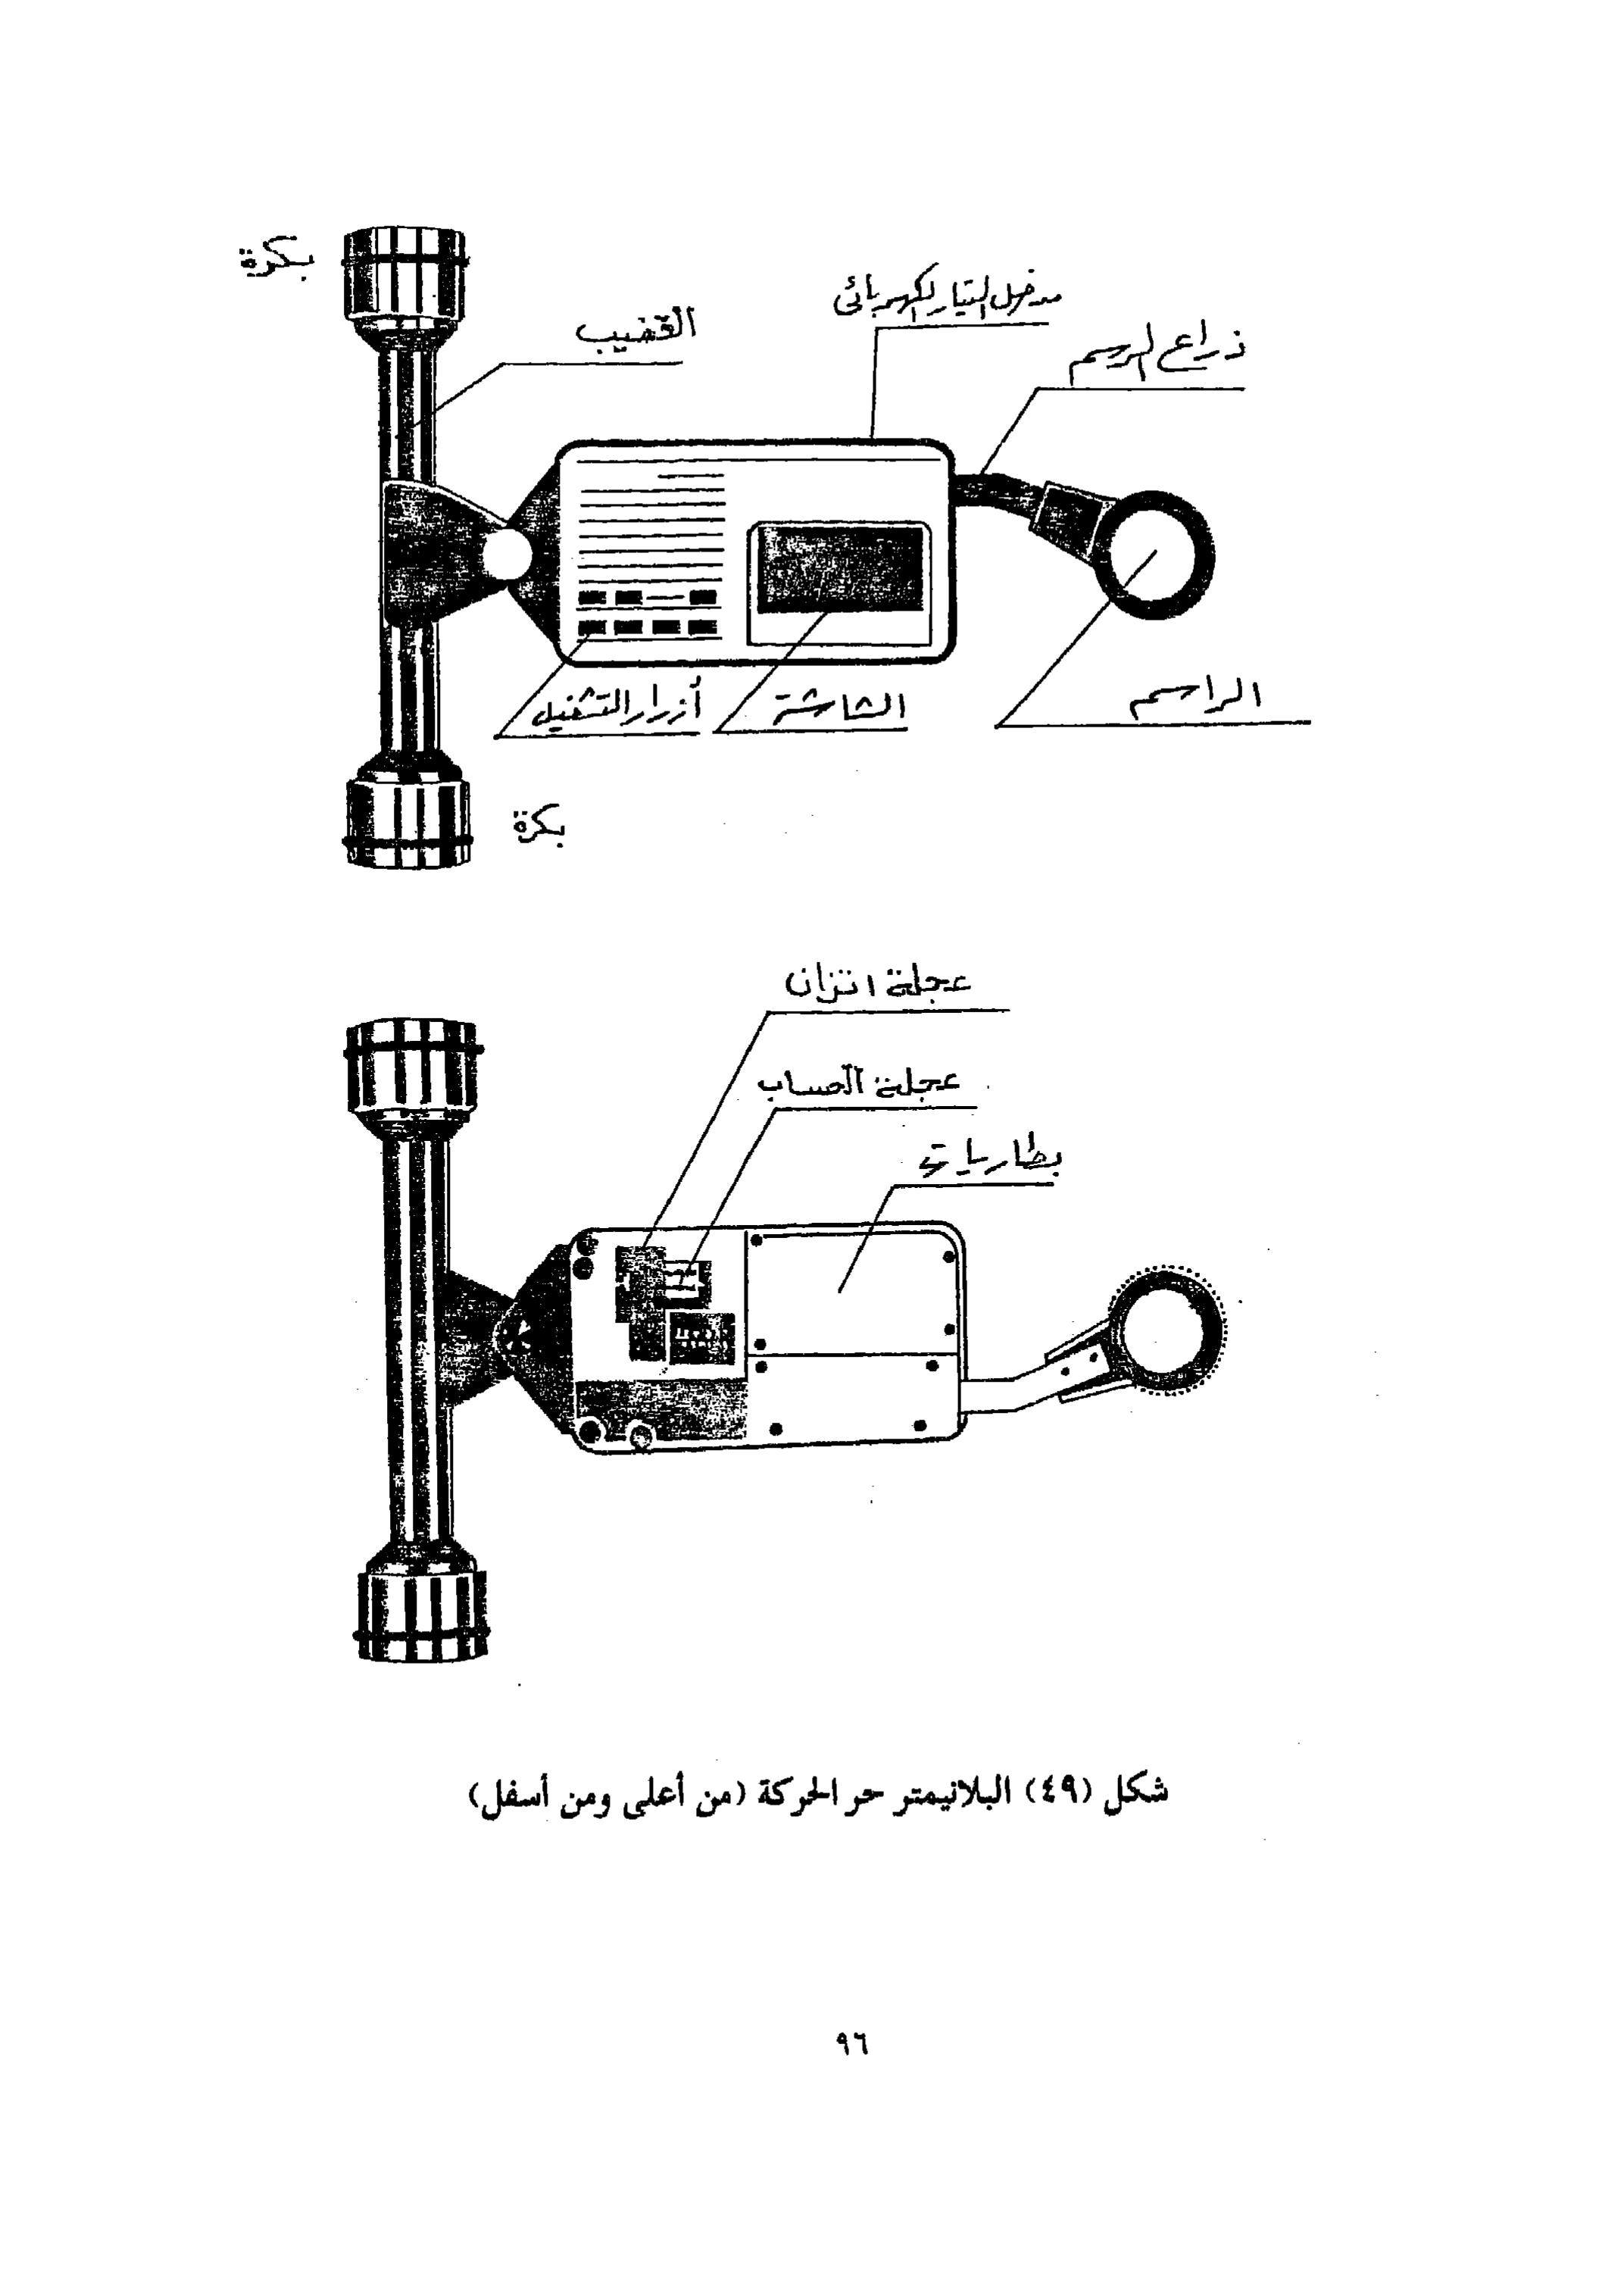 بكرة
القضيب
مدخل التيار الكهربائى
ذراع الرسم
أزرار التشغيل
الشاشة
الراسم
بكرة
عجلة اتزان
عجلة الحساب
بطاريات
شكل (٤٩) البلانيمتر حر الحركة (من أعلى ومن أسفل)
٩٦